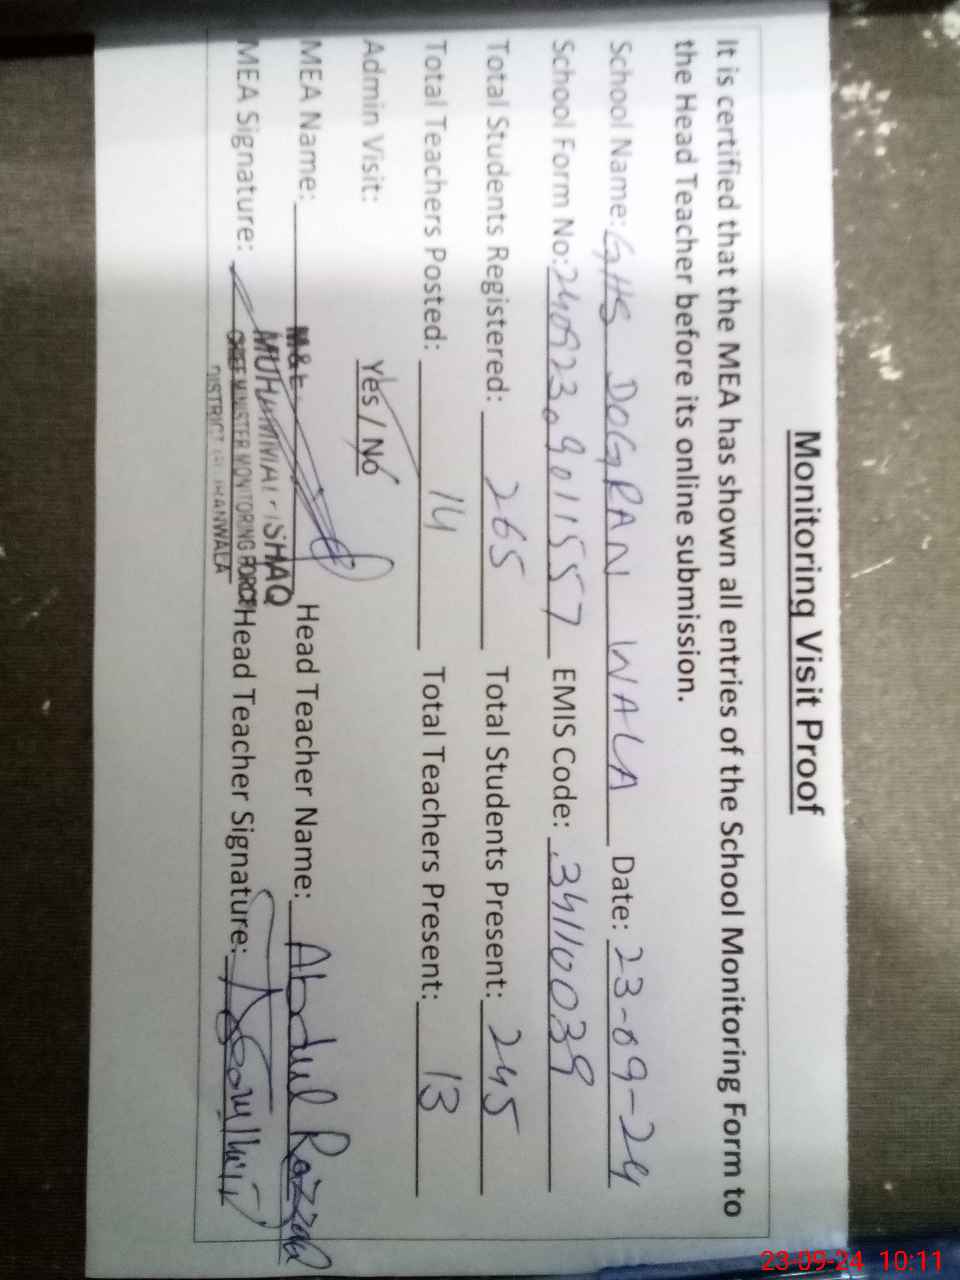 Monitoring Visit Proof
It is certified that the MEA has shown all entries of the School Monitoring Form to
the Head Teacher before its online submission.
School Name: GHS DOGRAN WALA Date: 23-09-24
School Form No: 240923.901557 EMIS Code: 34110039
Total Students Registered: 265 Total Students Present: 245
Total Teachers Posted: 14 Total Teachers Present: 13
Admin Visit: Yes / No
MEA Name: Head Teacher Name: Abdul Razzaq
M&E
MUHAMMAD ISHAQ
MEA Signature: Head Teacher Signature:
CHIEF MINISTER MONITORING FORCE
DISTRICT GUJRANWALA
23-09-24 10:11